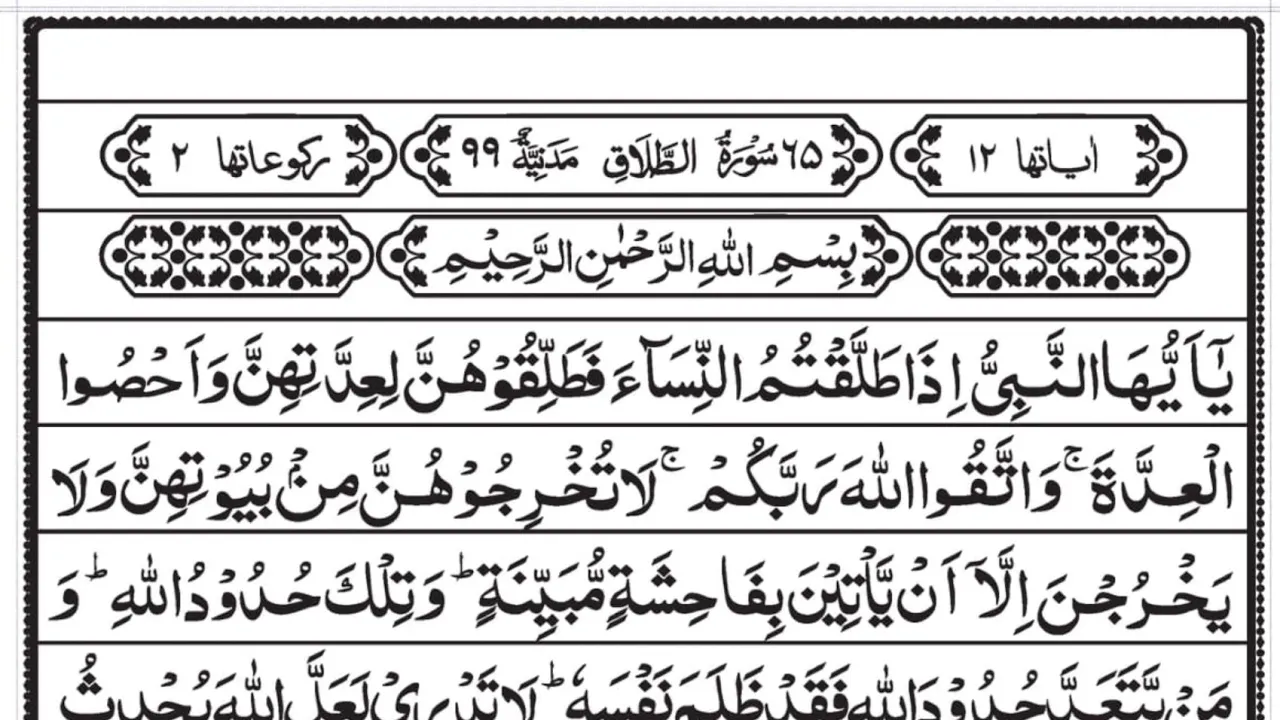 اٰياتها ١٢ ٦٥ سُوْرَةُ الطَّلَاقِ مَدَنِيَّةٌ ٩٩ ركوعاتها ٢
بِسْمِ اللّٰهِ الرَّحْمٰنِ الرَّحِيْمِ
يٰٓاَيُّهَا النَّبِىُّ اِذَا طَلَّقْتُمُ النِّسَآءَ فَطَلِّقُوْهُنَّ لِعِدَّتِهِنَّ وَاَحْصُوا
الْعِدَّةَ ۚ وَاتَّقُوا اللّٰهَ رَبَّكُمْ ۚ لَا تُخْرِجُوْهُنَّ مِنْۢ بُيُوْتِهِنَّ وَلَا
يَخْرُجْنَ اِلَّآ اَنْ يَّاْتِيْنَ بِفَاحِشَةٍ مُّبَيِّنَةٍ ؕ وَتِلْكَ حُدُوْدُ اللّٰهِ ؕ وَ
مَنْ يَّتَعَدَّ حُدُوْدَ اللّٰهِ فَقَدْ ظَلَمَ نَفْسَهٗ ؕ لَا تَدْرِىْ لَعَلَّ اللّٰهَ يُحْدِثُ